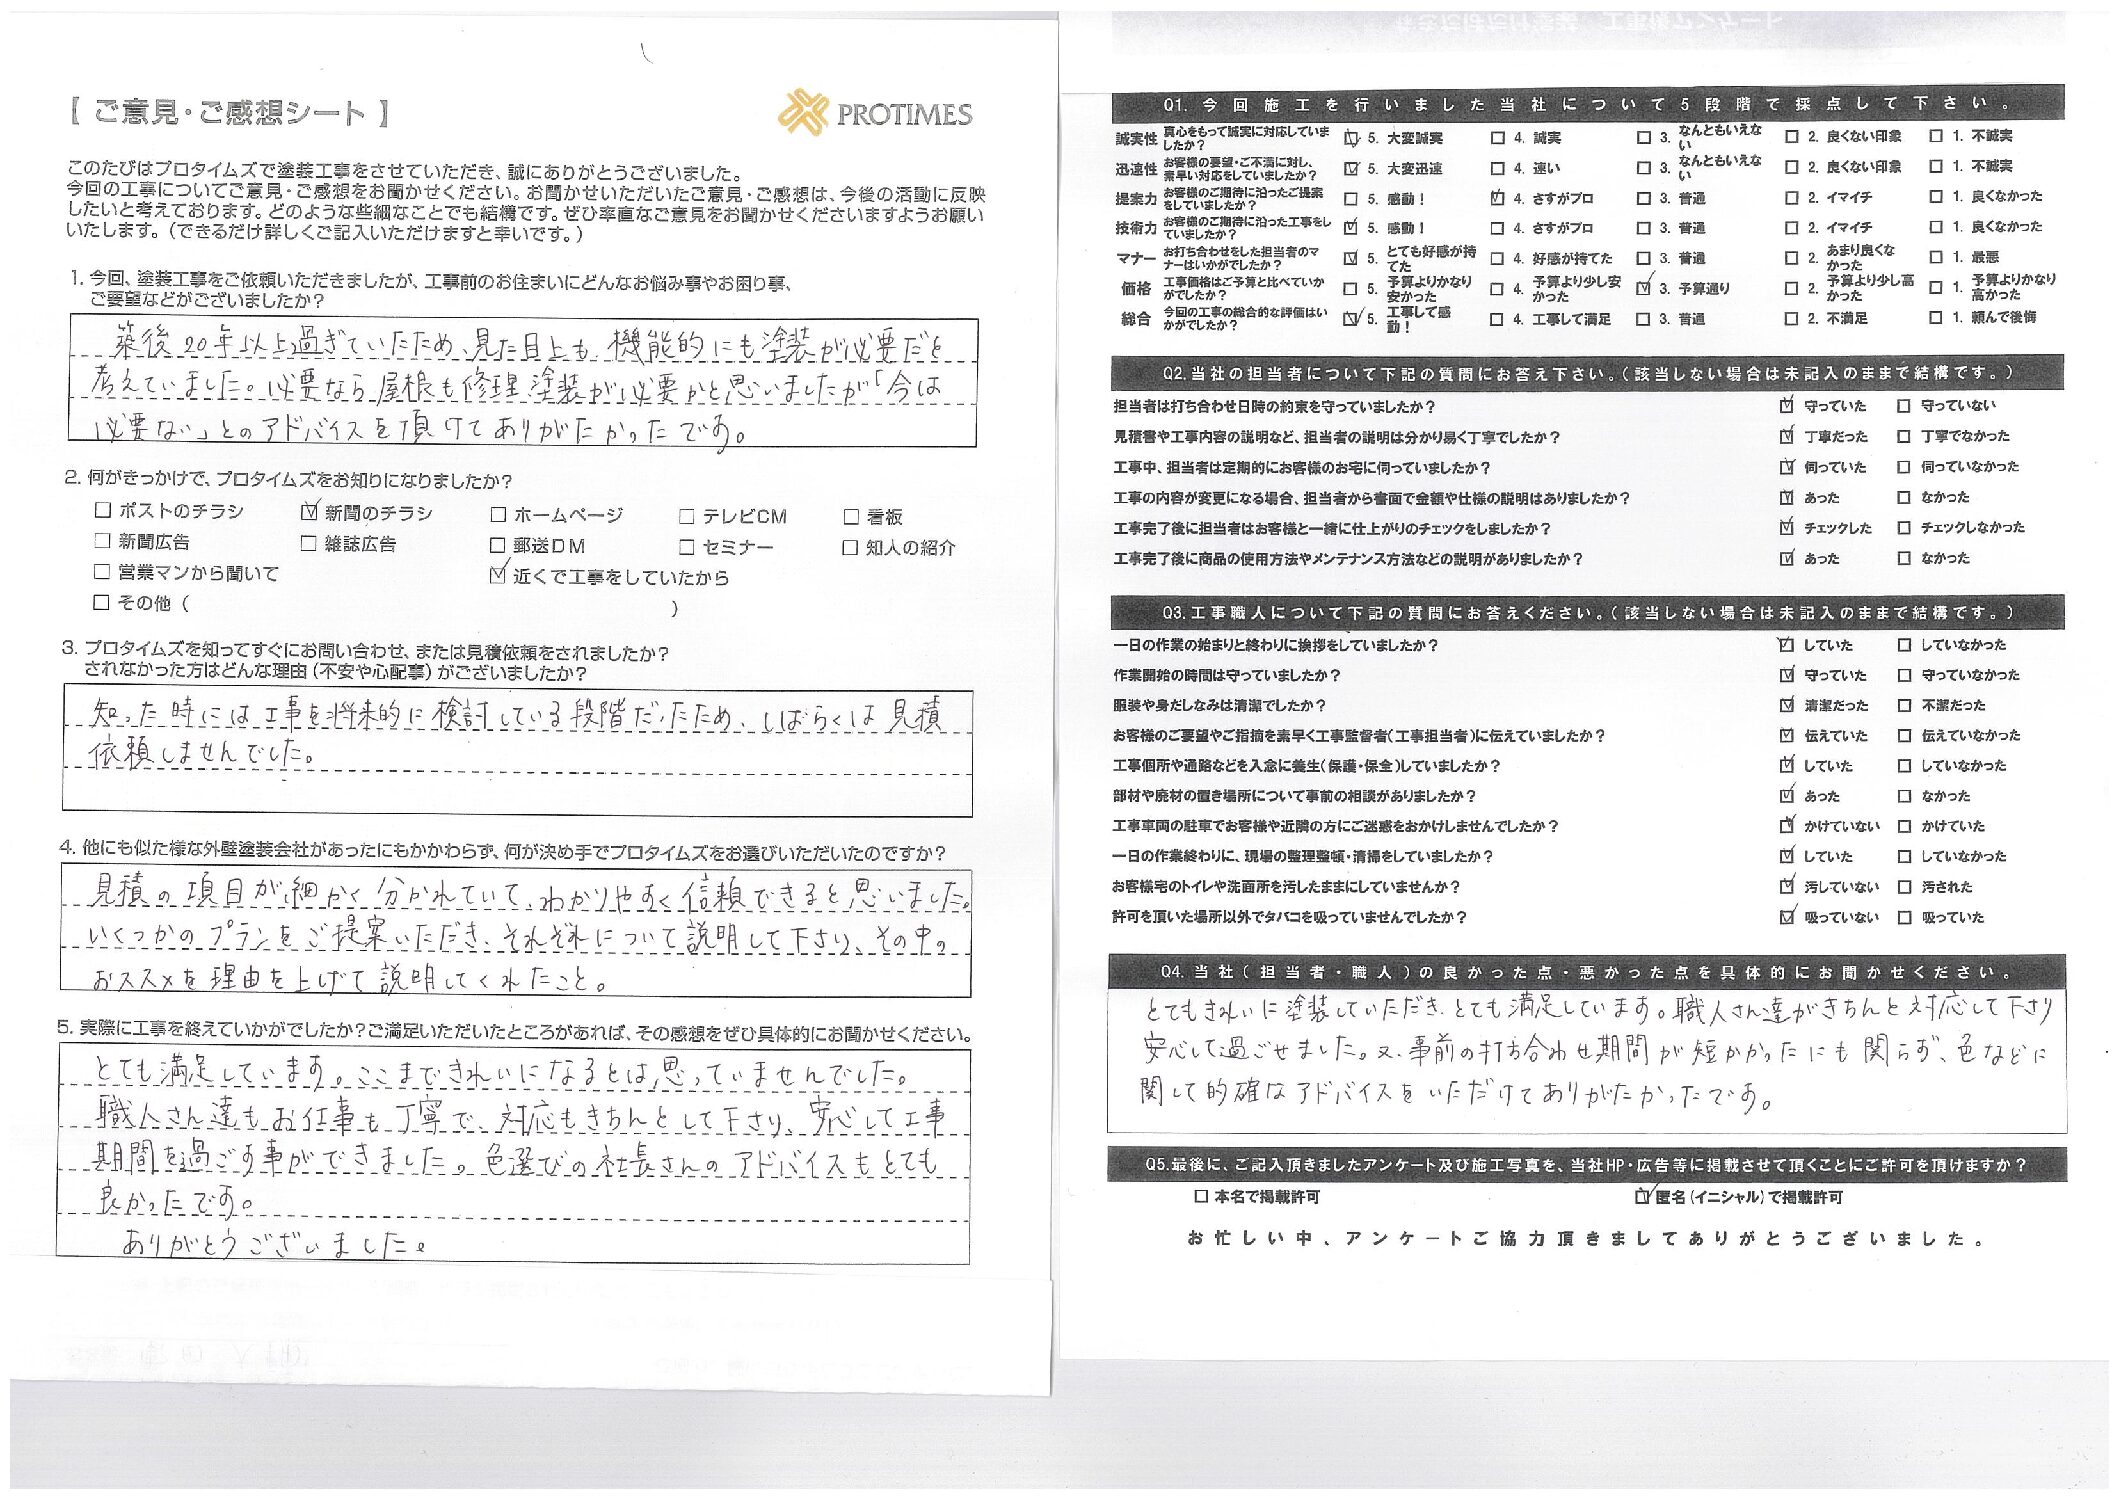 【 ご意見・ご感想シート 】
PROTIMES
このたびはプロタイムズで塗装工事をさせていただき、誠にありがとうございました。
今回の工事についてご意見・ご感想をお聞かせください。お聞かせいただいたご意見・ご感想は、今後の活動に反映
したいと考えております。どのような些細なことでも結構です。ぜひ率直なご意見をお聞かせくださいますようお願い
いたします。（できるだけ詳しくご記入いただけますと幸いです。）
1. 今回、塗装工事をご依頼いただきましたが、工事前のお住まいにどんなお悩み事やお困り事、
ご要望などがございましたか？
築後20年以上過ぎていたため、見た目上も、機能的にも塗装が必要だと
考えていました。必要なら屋根も修理塗装が必要かと思いましたが「今は
必要ない」とのアドバイスを頂けてありがたかったです。
2. 何がきっかけで、プロタイムズをお知りになりましたか？
□ ポストのチラシ ☑ 新聞のチラシ □ ホームページ □ テレビCM □ 看板
□ 新聞広告 □ 雑誌広告 □ 郵送DM □ セミナー □ 知人の紹介
□ 営業マンから聞いて ☑ 近くで工事をしていたから
□ その他（ ）
3. プロタイムズを知ってすぐにお問い合わせ、または見積依頼をされましたか？
されなかった方はどんな理由（不安や心配事）がございましたか？
知った時には工事を将来的に検討している段階だったため、しばらくは見積
依頼しませんでした。
4. 他にも似た様な外壁塗装会社があったにもかかわらず、何が決め手でプロタイムズをお選びいただいたのですか？
見積の項目が細かく分かれていて、わかりやすく信頼できると思いました。
いくつかのプランをご提案いただき、それぞれについて説明して下さり、その中の
おススメを理由を上げて説明してくれたこと。
5. 実際に工事を終えていかがでしたか？ご満足いただいたところがあれば、その感想をぜひ具体的にお聞かせください。
とても満足しています。ここまできれいになるとは思っていませんでした。
職人さん達もお仕事も丁寧で、対応もきちんとして下さり、安心して工事
期間を過ごす事ができました。色選びの社長さんのアドバイスもとても
良かったです。
ありがとうございました。
Q1. 今回施工を行いました当社について5段階で採点して下さい。
誠実性 真心をもって誠実に対応していましたか？ ☑ 5. 大変誠実 □ 4. 誠実 □ 3. なんともいえない □ 2. 良くない印象 □ 1. 不誠実
迅速性 お客様の要望・ご不満に対し、素早い対応をしていましたか？ ☑ 5. 大変迅速 □ 4. 速い □ 3. なんともいえない □ 2. 良くない印象 □ 1. 不誠実
提案力 お客様のご期待に沿ったご提案をしていましたか？ □ 5. 感動！ ☑ 4. さすがプロ □ 3. 普通 □ 2. イマイチ □ 1. 良くなかった
技術力 お客様のご期待に沿った工事をしていましたか？ ☑ 5. 感動！ □ 4. さすがプロ □ 3. 普通 □ 2. イマイチ □ 1. 良くなかった
マナー お打ち合わせをした担当者のマナーはいかがでしたか？ ☑ 5. とても好感が持てた □ 4. 好感が持てた □ 3. 普通 □ 2. あまり良くなかった □ 1. 最悪
価格 工事価格はご予算と比べていかがでしたか？ □ 5. 予算よりかなり安かった □ 4. 予算より少し安かった ☑ 3. 予算通り □ 2. 予算より少し高かった □ 1. 予算よりかなり高かった
総合 今回の工事の総合的な評価はいかがでしたか？ ☑ 5. 工事して感動！ □ 4. 工事して満足 □ 3. 普通 □ 2. 不満足 □ 1. 頼んで後悔
Q2. 当社の担当者について下記の質問にお答え下さい。（該当しない場合は未記入のままで結構です。）
担当者は打ち合わせ日時の約束を守っていましたか？ ☑ 守っていた □ 守っていない
見積書や工事内容の説明など、担当者の説明は分かり易く丁寧でしたか？ ☑ 丁寧だった □ 丁寧でなかった
工事中、担当者は定期的にお客様のお宅に伺っていましたか？ ☑ 伺っていた □ 伺っていなかった
工事の内容が変更になる場合、担当者から書面で金額や仕様の説明はありましたか？ ☑ あった □ なかった
工事完了後に担当者はお客様と一緒に仕上がりのチェックをしましたか？ ☑ チェックした □ チェックしなかった
工事完了後に商品の使用方法やメンテナンス方法などの説明がありましたか？ ☑ あった □ なかった
Q3. 工事職人について下記の質問にお答えください。（該当しない場合は未記入のままで結構です。）
一日の作業の始まりと終わりに挨拶をしていましたか？ ☑ していた □ していなかった
作業開始の時間は守っていましたか？ ☑ 守っていた □ 守っていなかった
服装や身だしなみは清潔でしたか？ ☑ 清潔だった □ 不潔だった
お客様のご要望やご指摘を素早く工事監督者（工事担当者）に伝えていましたか？ ☑ 伝えていた □ 伝えていなかった
工事個所や通路などを入念に養生（保護・保全）していましたか？ ☑ していた □ していなかった
部材や廃材の置き場所について事前の相談がありましたか？ ☑ あった □ なかった
工事車両の駐車でお客様や近隣の方にご迷惑をおかけしませんでしたか？ ☑ かけていない □ かけていた
一日の作業終わりに、現場の整理整頓・清掃をしていましたか？ ☑ していた □ していなかった
お客様宅のトイレや洗面所を汚したままにしていませんか？ ☑ 汚していない □ 汚された
許可を頂いた場所以外でタバコを吸っていませんでしたか？ ☑ 吸っていない □ 吸っていた
Q4. 当社（担当者・職人）の良かった点・悪かった点を具体的にお聞かせください。
とてもきれいに塗装していただき、とても満足しています。職人さん達がきちんと対応して下さり
安心して過ごせました。又、事前の打ち合わせ期間が短かかったにも関らず、色などに
関して的確なアドバイスをいただけてありがたかったです。
Q5. 最後に、ご記入頂きましたアンケート及び施工写真を、当社HP・広告等に掲載させて頂くことにご許可を頂けますか？
□ 本名で掲載許可 ☑ 匿名（イニシャル）で掲載許可
お忙しい中、アンケートご協力頂きましてありがとうございました。